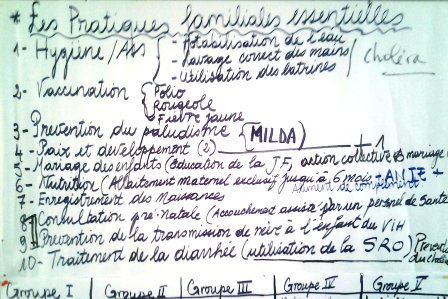 * Les Pratiques familiales essentielles
1- Hygiène/Ass { - Potabilisation de l'eau
- Lavage correct des mains
- Utilisation des latrines } Choléra
2- Vaccination { Polio
Rougeole
Fièvre jaune
3- Prevention du paludisme { MILDA }
4- Paix et developpement (2)
5- Mariage des enfants (Education de la JF, action collective mariage
6- Nutrition (Allaitement maternel exclusif jusqu'à 6 mois +
Aliment de complement
7- Enregistrement des Naissances
8- Consultation pré-Natale (Accouchement assisté par un personel de Santé
9- Prévention de la transmission de mère à l'enfant du VIH
10- Traitement de la diarrhée (utilisation de la SRO)
du cholera
Groupe I Groupe II Groupe III Groupe IV Groupe V